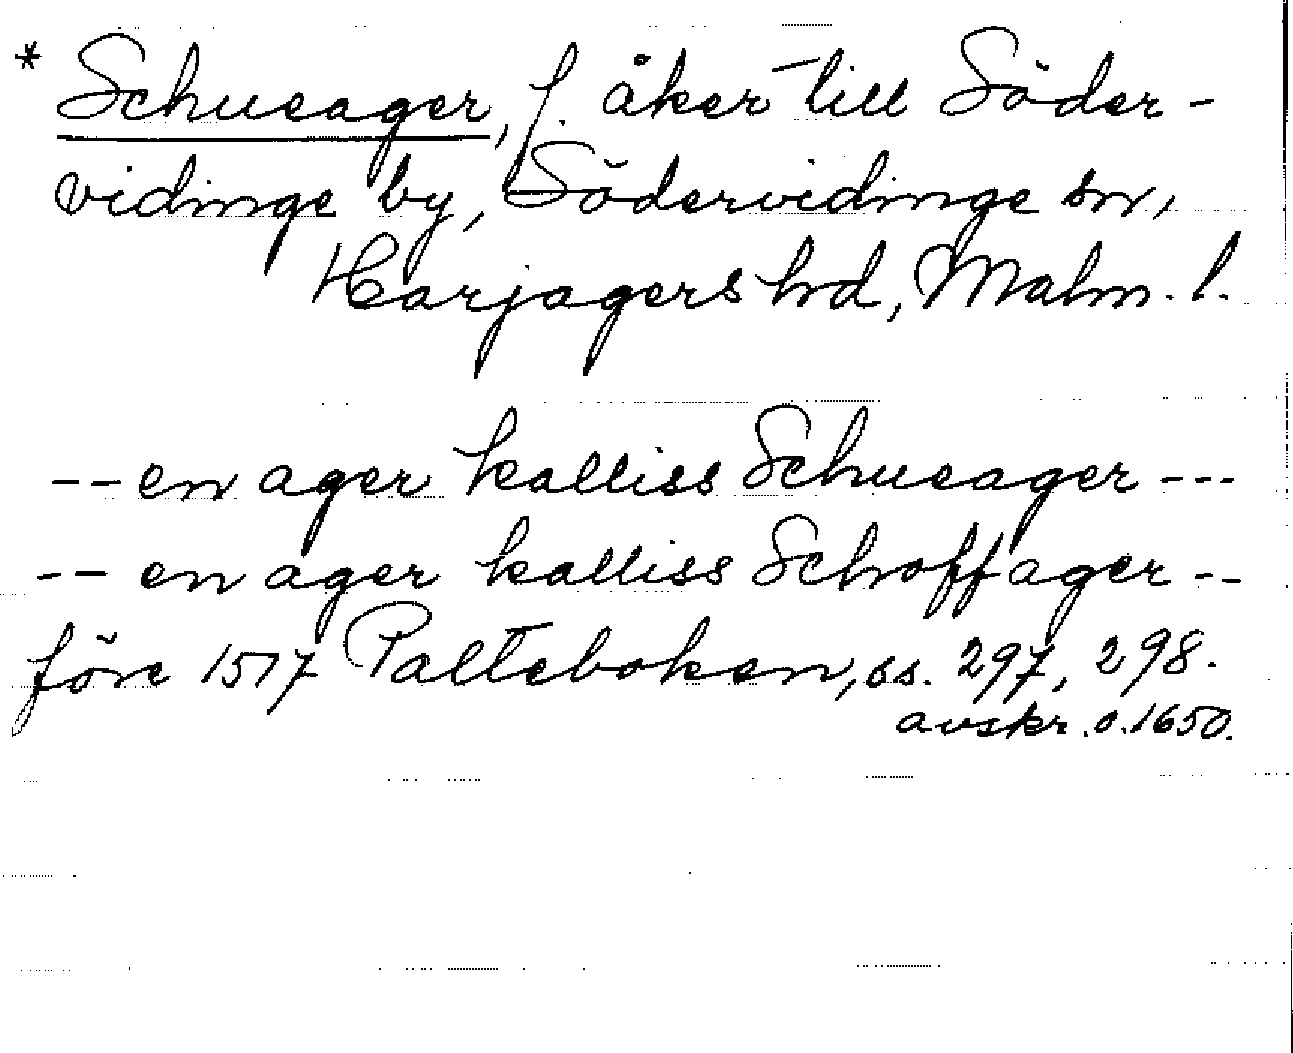 * Schueager, f. åker till Söder-
vidinge by, Södervidinge sn,
Harjagers hd, Malm. l.
-- en ager kalliss Schueager ---
-- en ager kalliss Schoffager --
före 1517 Palteboken, ss. 297, 298.
avskr. o. 1650.